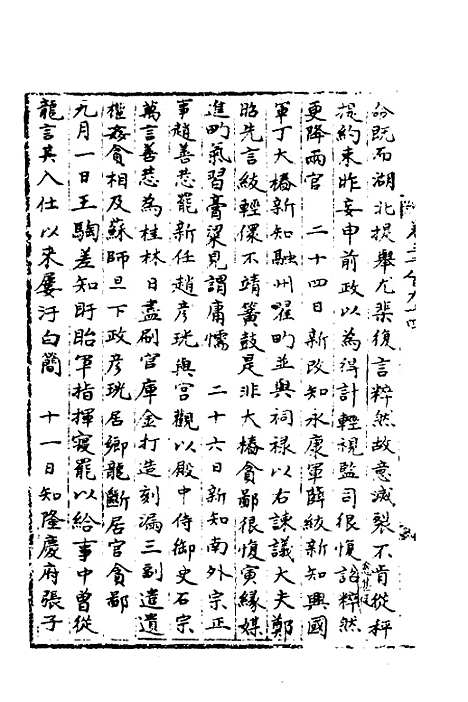 命既而湖北提舉尤棐復言粹然故意滅裂不肯從秤
提約束昨妄申前政以為得計輕視監司很愎詔粹然
更降兩官 二十四日新改知永康軍薛紱新知興國
軍丁大椿新知融州瞿昀並與祠祿以右諫議大夫鄭
昭先言紱輕儇不靖簧鼓是非大椿貪鄙很愎寅緣媒
進昀氣習膏粱見謂庸懦 二十六日新知南外宗正
事趙善恣罷新任趙彥珖與宮觀以殿中侍御史石宗
萬言善恣為桂林日盡刷官庫金打造刻漏三副遣遺
權奸貪相及蘇師旦下政彥珖居鄉龍斷居官貪鄙
九月一日王騊差知盱眙軍指揮寢罷以給事中曾從
龍言其入仕以來屢汙白簡 十一日知隆慶府張子